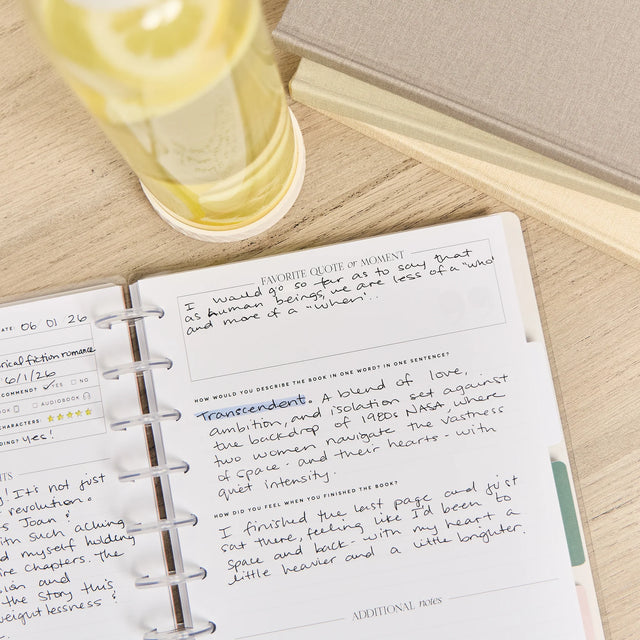 DATE: 06 01 26
historical fiction romance
6/1/26
RECOMMEND? ✓YES □ NO
□ AUDIOBOOK
CHARACTERS: ★★★★★
yes!
! It's not just
revolution.
Joan!
with such aching
myself holding
chapters. The
and
the story this
weightlessness!
FAVORITE QUOTE or MOMENT
I would go so far as to say that
as human beings, we are less of a "who"
and more of a "when"...
HOW WOULD YOU DESCRIBE THE BOOK IN ONE WORD? IN ONE SENTENCE?
Transcendent. A blend of love,
ambition, and isolation set against
the backdrop of 1980s NASA, where
two women navigate the vastness
of space - and their hearts - with
quiet intensity.
HOW DID YOU FEEL WHEN YOU FINISHED THE BOOK?
I finished the last page and just
sat there, feeling like I'd been to
space and back - with my heart a
little heavier and a little brighter.
ADDITIONAL notes